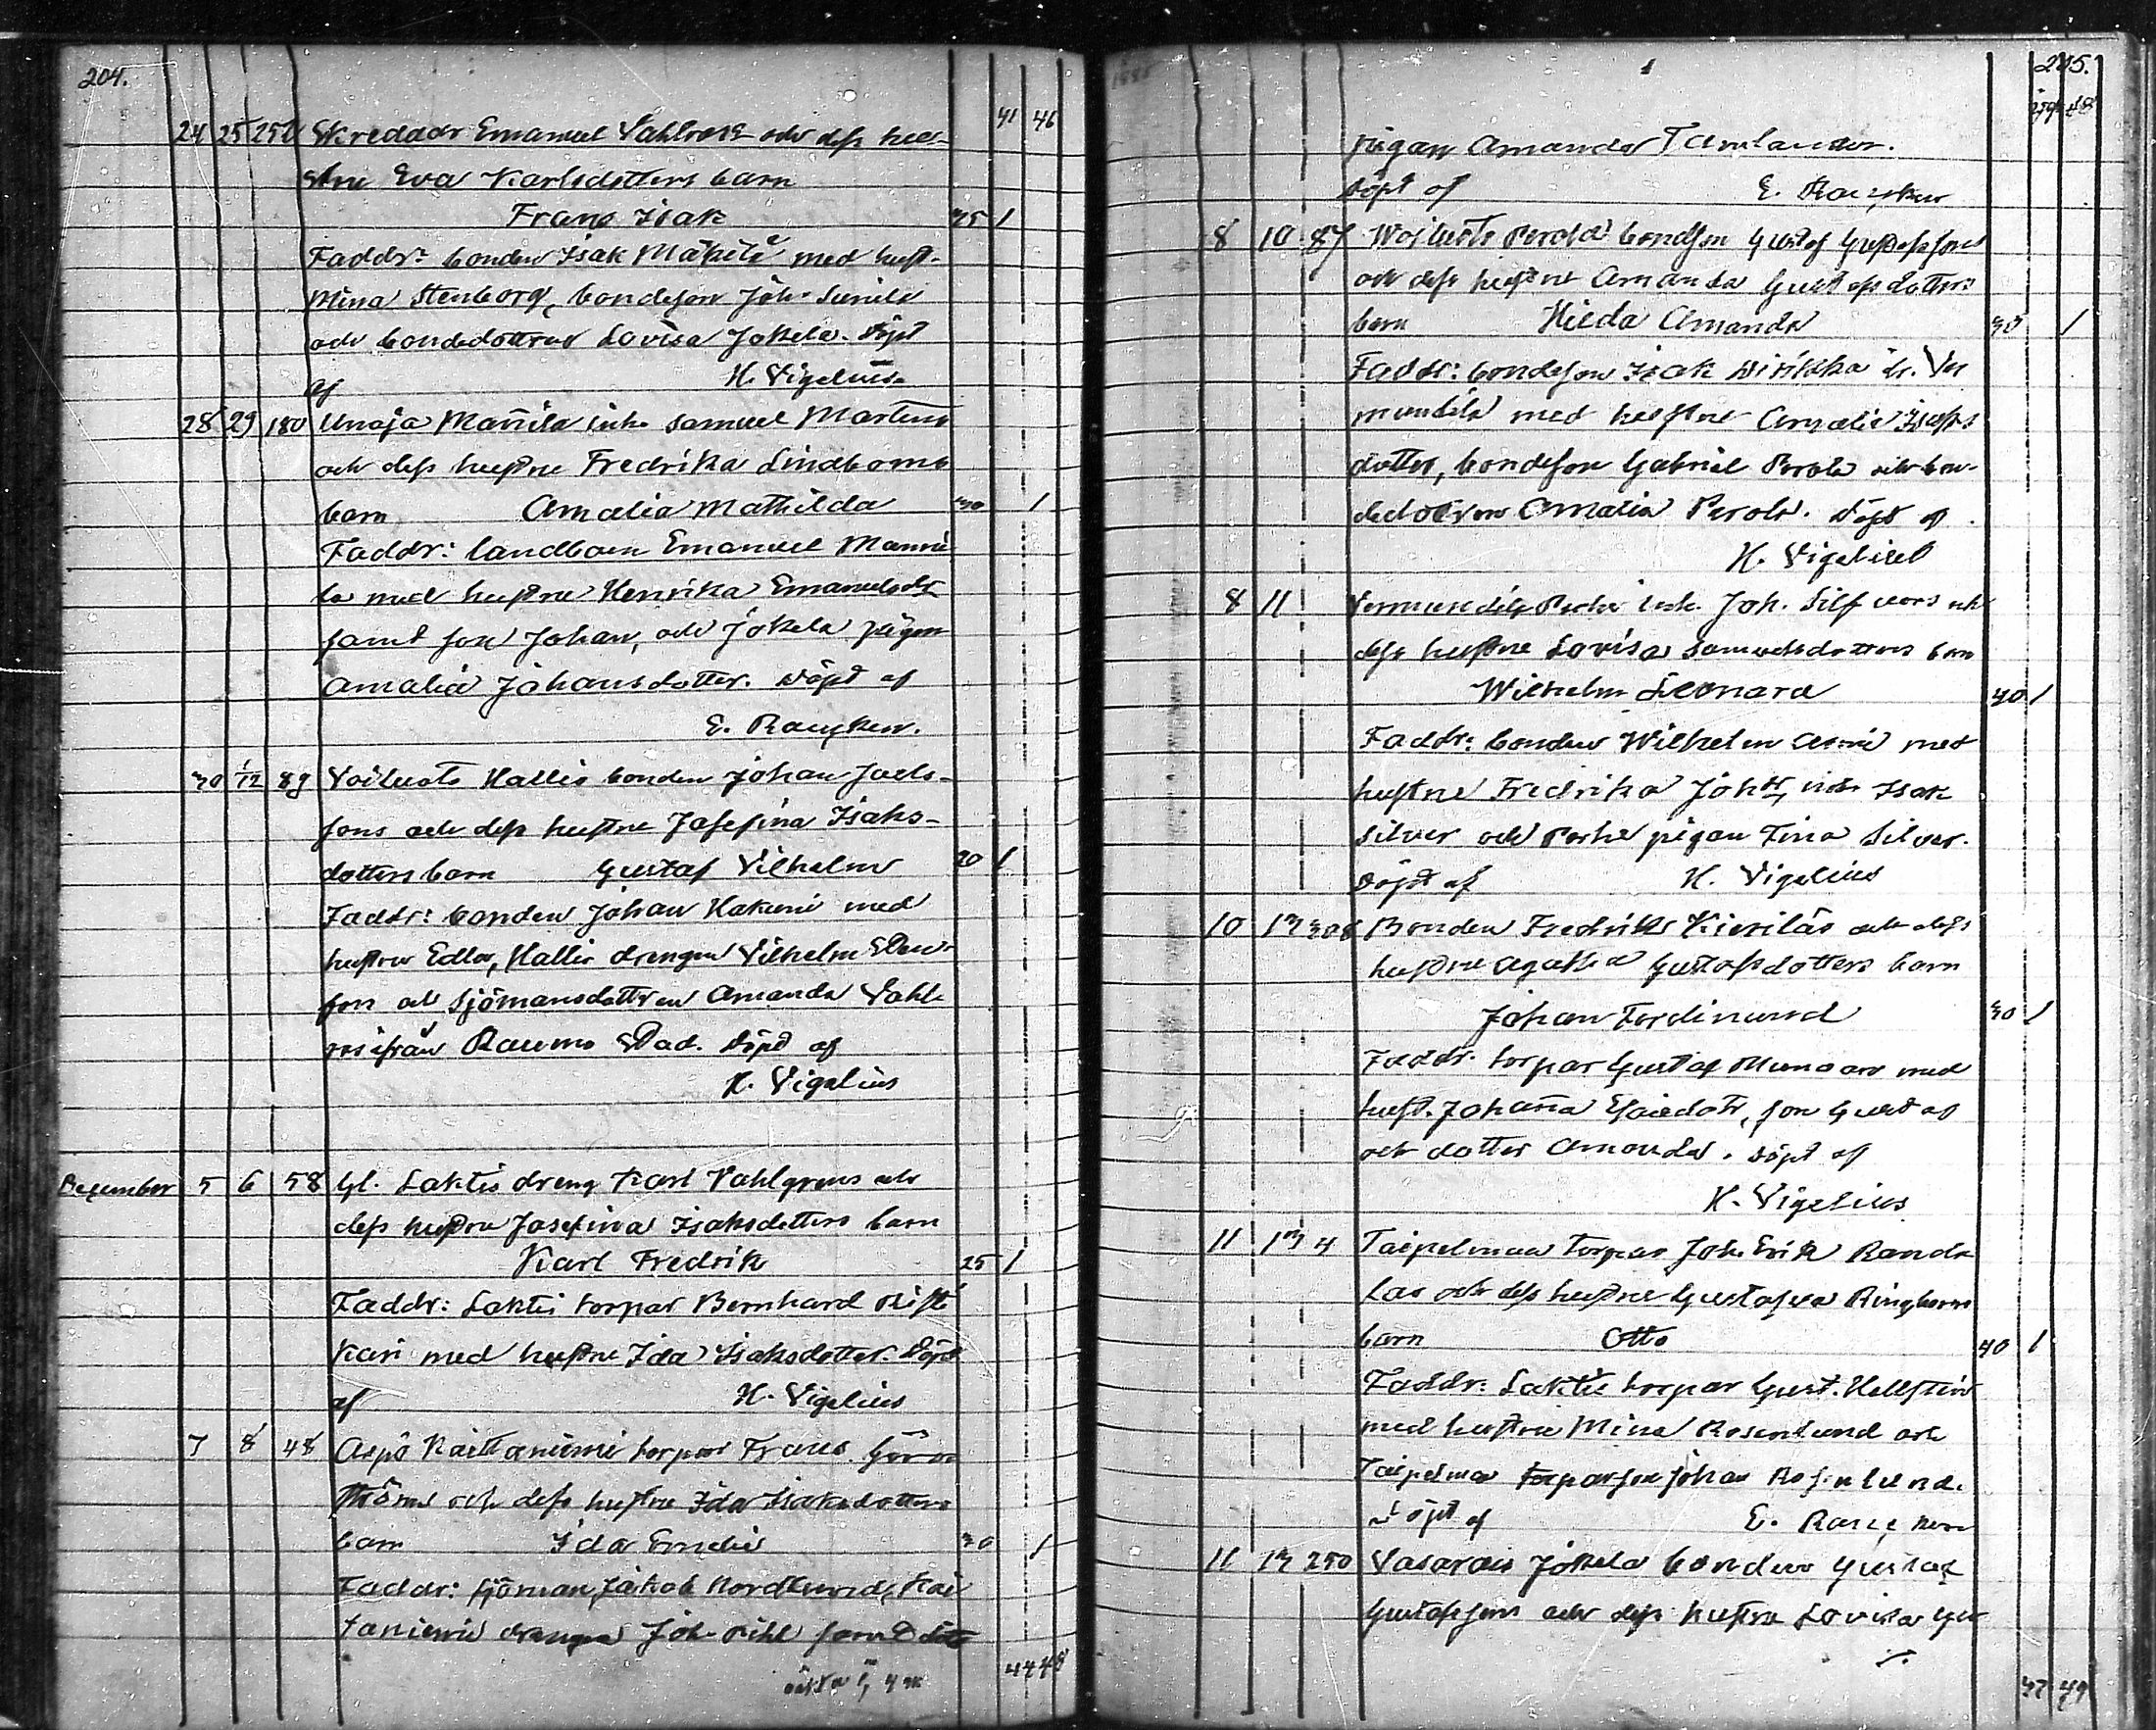 204.
41 46
24 25 252 Skreddar Emanuel Vahlroos och dess hu-
stru Eva Karlsdotters barn
Frans Isak 25 1
Faddr: bonden Isak Mäkilä med hust.
Mina Stenborg, bondeson Joh. Sunila
och bondedottren Lovisa Jokela. Döpt
af H. Vigelius.
28 29 180 Unaja Mannila inh. Samuel Martins
och dess hustru Fredrika Lindboms
barn Amalia Mathilda 30 1
Faddr: landboen Emanuel Manni
la med hustru Henrika Emanuelsdr
samt son Johan, och Jokela pigan
Amalia Johansdotter. Döpt af
E. Rancken.
30 1/12 89 Voiluoto Hallis bonden Johan Joels-
sons och dess hustru Josefina Isaks-
dotters barn Gustaf Vilhelm 20 1
Faddr: bonden Johan Hakuni med
hustru Edla, Hallis drengen Vilhelm
son och Sjömansdottren Amanda Vahl-
ifrån Raumo Stad. Döpt af
H. Vigelius
December 5 6 58 Gl. Laktis dreng Karl Vahlgrens och
dess hustru Josefina Isaksdotters barn
Karl Fredrik 25 1
Faddr: Laktis torpar Bernhard Risti
kari med hustru Ida Isaksdotter. Döpt
af H. Vigelius
7 8 48 Aspö Kaittaniemi torpar Frans
ströms och dess hustru Ida Isaksdotters
barn Ida Emelie 30 1
Faddr: sjöman Jakob Nordlund, Kai
taniemi drengen Joh. Pihl samt
44 48
205.
44 48
pigan Amanda Tamlander.
Döpt af E. Rancken
8 10 87 Woiluoto Perola bondson Gustaf Gustafssons
och dess hustru Amanda Gustafsdotters
barn Hilda Amanda 30 1
Faddr: bondeson Isak
med hustru Amalia
dotter, bondeson Gabriel Perola och bon-
dedottren Amalia Perola. Döpt af
H. Vigelius
8 11 Vermuntila Porhe inh. Joh. Silfvers och
dess hustru Lovisa Samuelsdotters barn
Wilhelm Leonard 40 1
Faddr: bonden Wilhelm Assi med
hustru Fredrika Johdr, inh. Isak
Silver och Porhe pigan Fina Silver.
Döpt af H. Vigelius
10 13 308 Bonden Fredrik Kierilas och dess
hustru Agatha Gustafsdotters barn
Johan Ferdinand 30 1
Faddr. torpar Gustaf med
hust. Johanna Esaiedotr, son Gustaf
och dotter Amanda. Döpt af
H. Vigelius
11 13 4 Taipalmaa torpar Joh. Erik Rande
las och dess hustru Gustafva Ringboms
barn Otto 40 1
Faddr: Laktis torpar Gust. Hellsten
med hustru Mina Rosenlund och
Taipalmaa torparson Johan Rosenlund.
Döpt af E. Rancken
11 13 250 Vasarais Jokela bonden Gustaf
Gustafssons och dess hustru Lovisa Gu
47 49